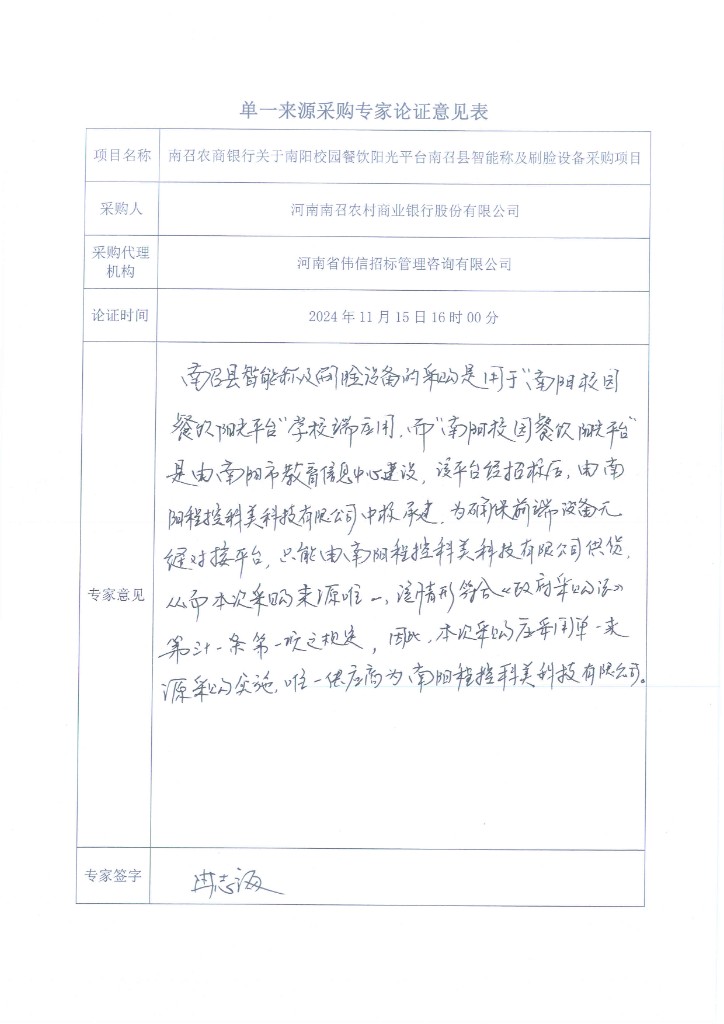 单一来源采购专家论证意见表
项目名称 南召农商银行关于南阳校园餐饮阳光平台南召县智能称及刷脸设备采购项目
采购人 河南南召农村商业银行股份有限公司
采购代理
机构 河南省伟信招标管理咨询有限公司
论证时间 2024年11月15日16时00分
专家意见
南召县智能称及刷脸设备的采购是用于"南阳校园
餐饮阳光平台"学校端应用,而"南阳校园餐饮阳光平台"
是由南阳市教育信息中心建设,该平台经招标后,由南
阳程控科美科技有限公司中标承建,为确保前端设备无
缝对接平台,只能由南阳程控科美科技有限公司供货,
从而本次采购来源唯一,该情形符合《政府采购法》
第三十一条第一项之规定,因此,本次采购应采用单一来
源采购实施,唯一供应商为南阳程控科美科技有限公司。
专家签字